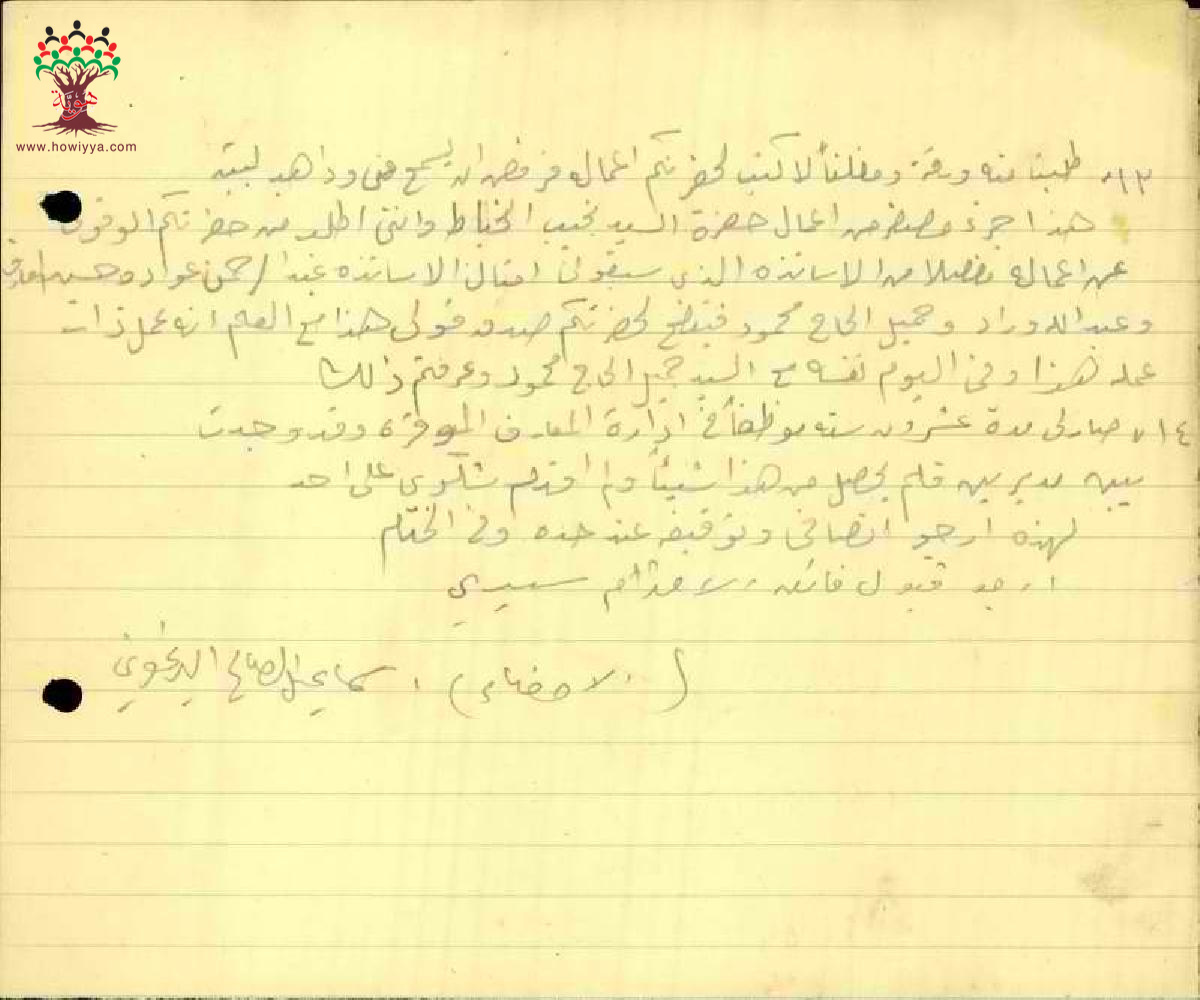 هوية
www.howiyya.com
١٣. طلبنا منه ورقة ومغلفاً لاكتب لحضرتكم اعماله فرفض ان يسمح لي وذاهب لبيته
هذا جزء مصغر من اعمال حضرة السيد نجيب الخياط وانني اطلب من حضرتكم الوقوف
عن اعماله مفصلا من الاساتذه الذي سبقوني امثال الاساتذه عبد الرحمن عواد وحسين
وعبد الله وراد وجميل الحاج محمود فيتضح لحضرتكم صدق قولي هذا مع العلم انه عمل ذات
عمله هذا وفي اليوم نفسه مع السيد جميل الحاج محمود وعرفتم ذالك
١٤. صار لي مدة عشرون سنه موظفاً في ادارة المعارف الموقرة وقد وجدت
بين مديرين فلم يحصل من هذا شيئاً ولم اقدم شكوى على احد
لهذه ارجو انصافي وتوقيفه عند حده وفي الختام
ارجو قبول فائق الاحترام سيدي
(الامضاء) اسماعيل الصالح